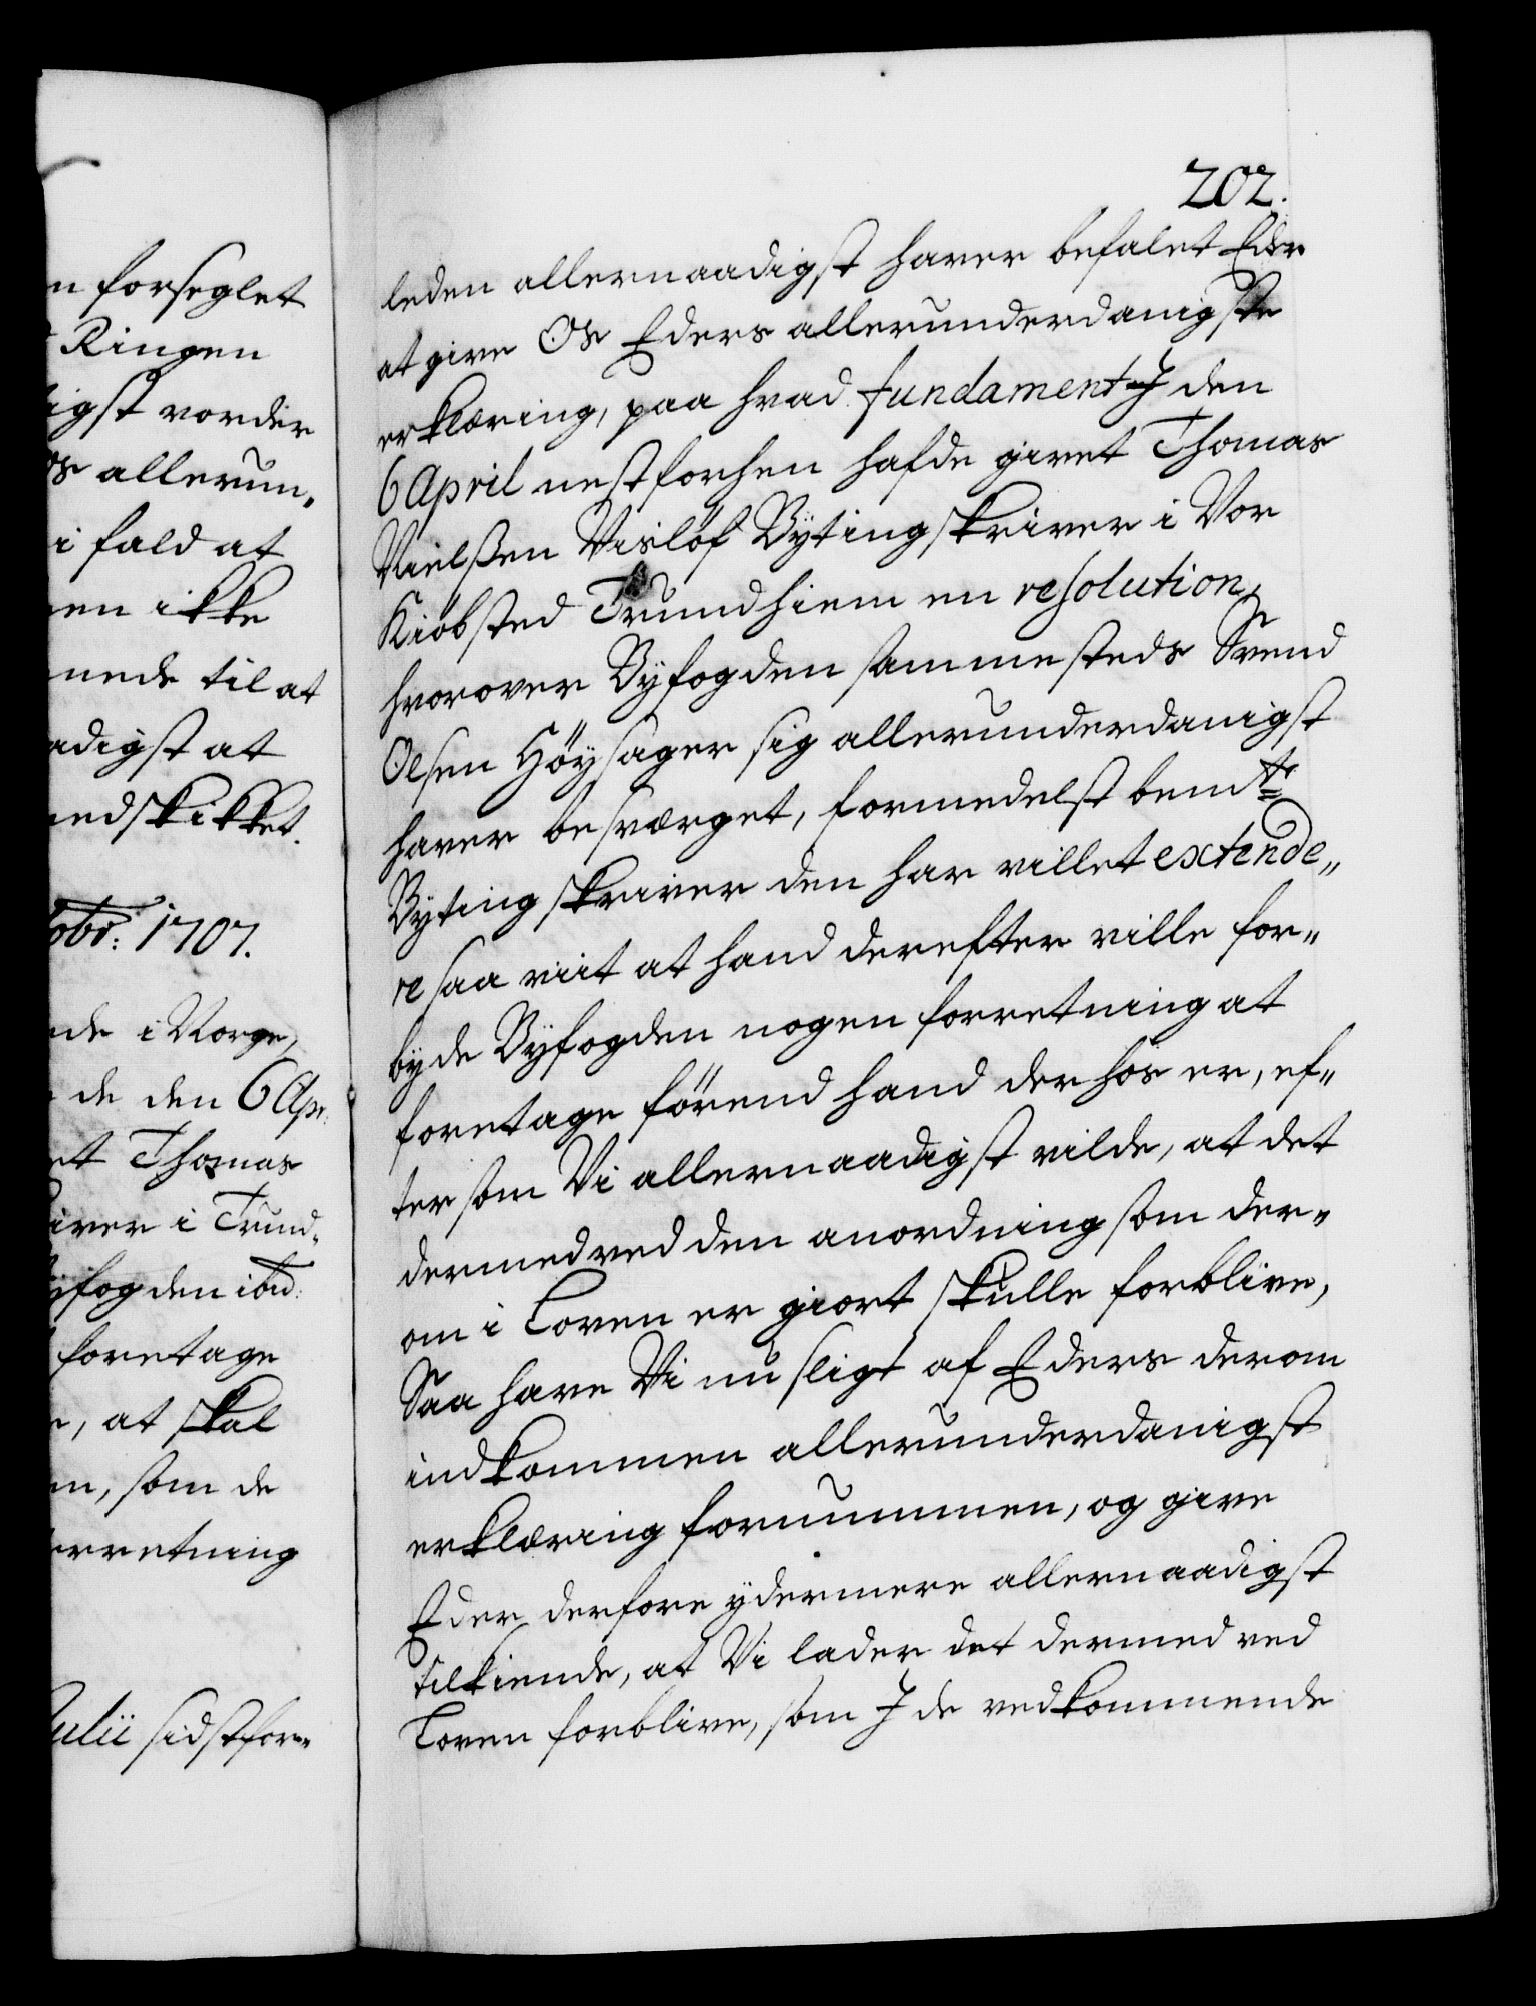 n forseglet
Ringen
igst vorder
os allerun„
i fald at
en ikke
nede til at
adigst at
nedskikket.
obr: 1707.
de i Norge,
de den 6 Apr:
et Thomas
iver i Trund„
yfogden ibid:
foretage
, at skal
n, som de
rretning
ulii sidstfor„
202.
leden allernaadigst haver befalet Eder
at give Os Eders allerunderdanigste
erklæring, paa hvad fundament I den
6 April nestforhen hafde givet Thomas
Nielßen Visløf Bytingskriver i Vor
Kiöbsted Trundhiem en resolution,
hvorover Byfogden sammesteds Svend
Olsen Höysager sig allerunderdanigst
haver besværget, formedelst bemte
Bytingskriver den har villet extende„
re saa viit at hand derefter ville for„
byde Byfogden nogen forretning at
foretage förend hand derhos er, ef„
tersom Vi allernaadigst vilde, at det
dermed ved den anordning som der„
om i Loven er giort skulle forblive,
Saa have Vi nu sligt af Eders derom
indkommen allerunderdanigst
erklæring fornummen, og give
Eder derfore ydermere allernaadigst
tilkiende, at Vi lader det dermed ved
Loven forblive, som I de vedkommende